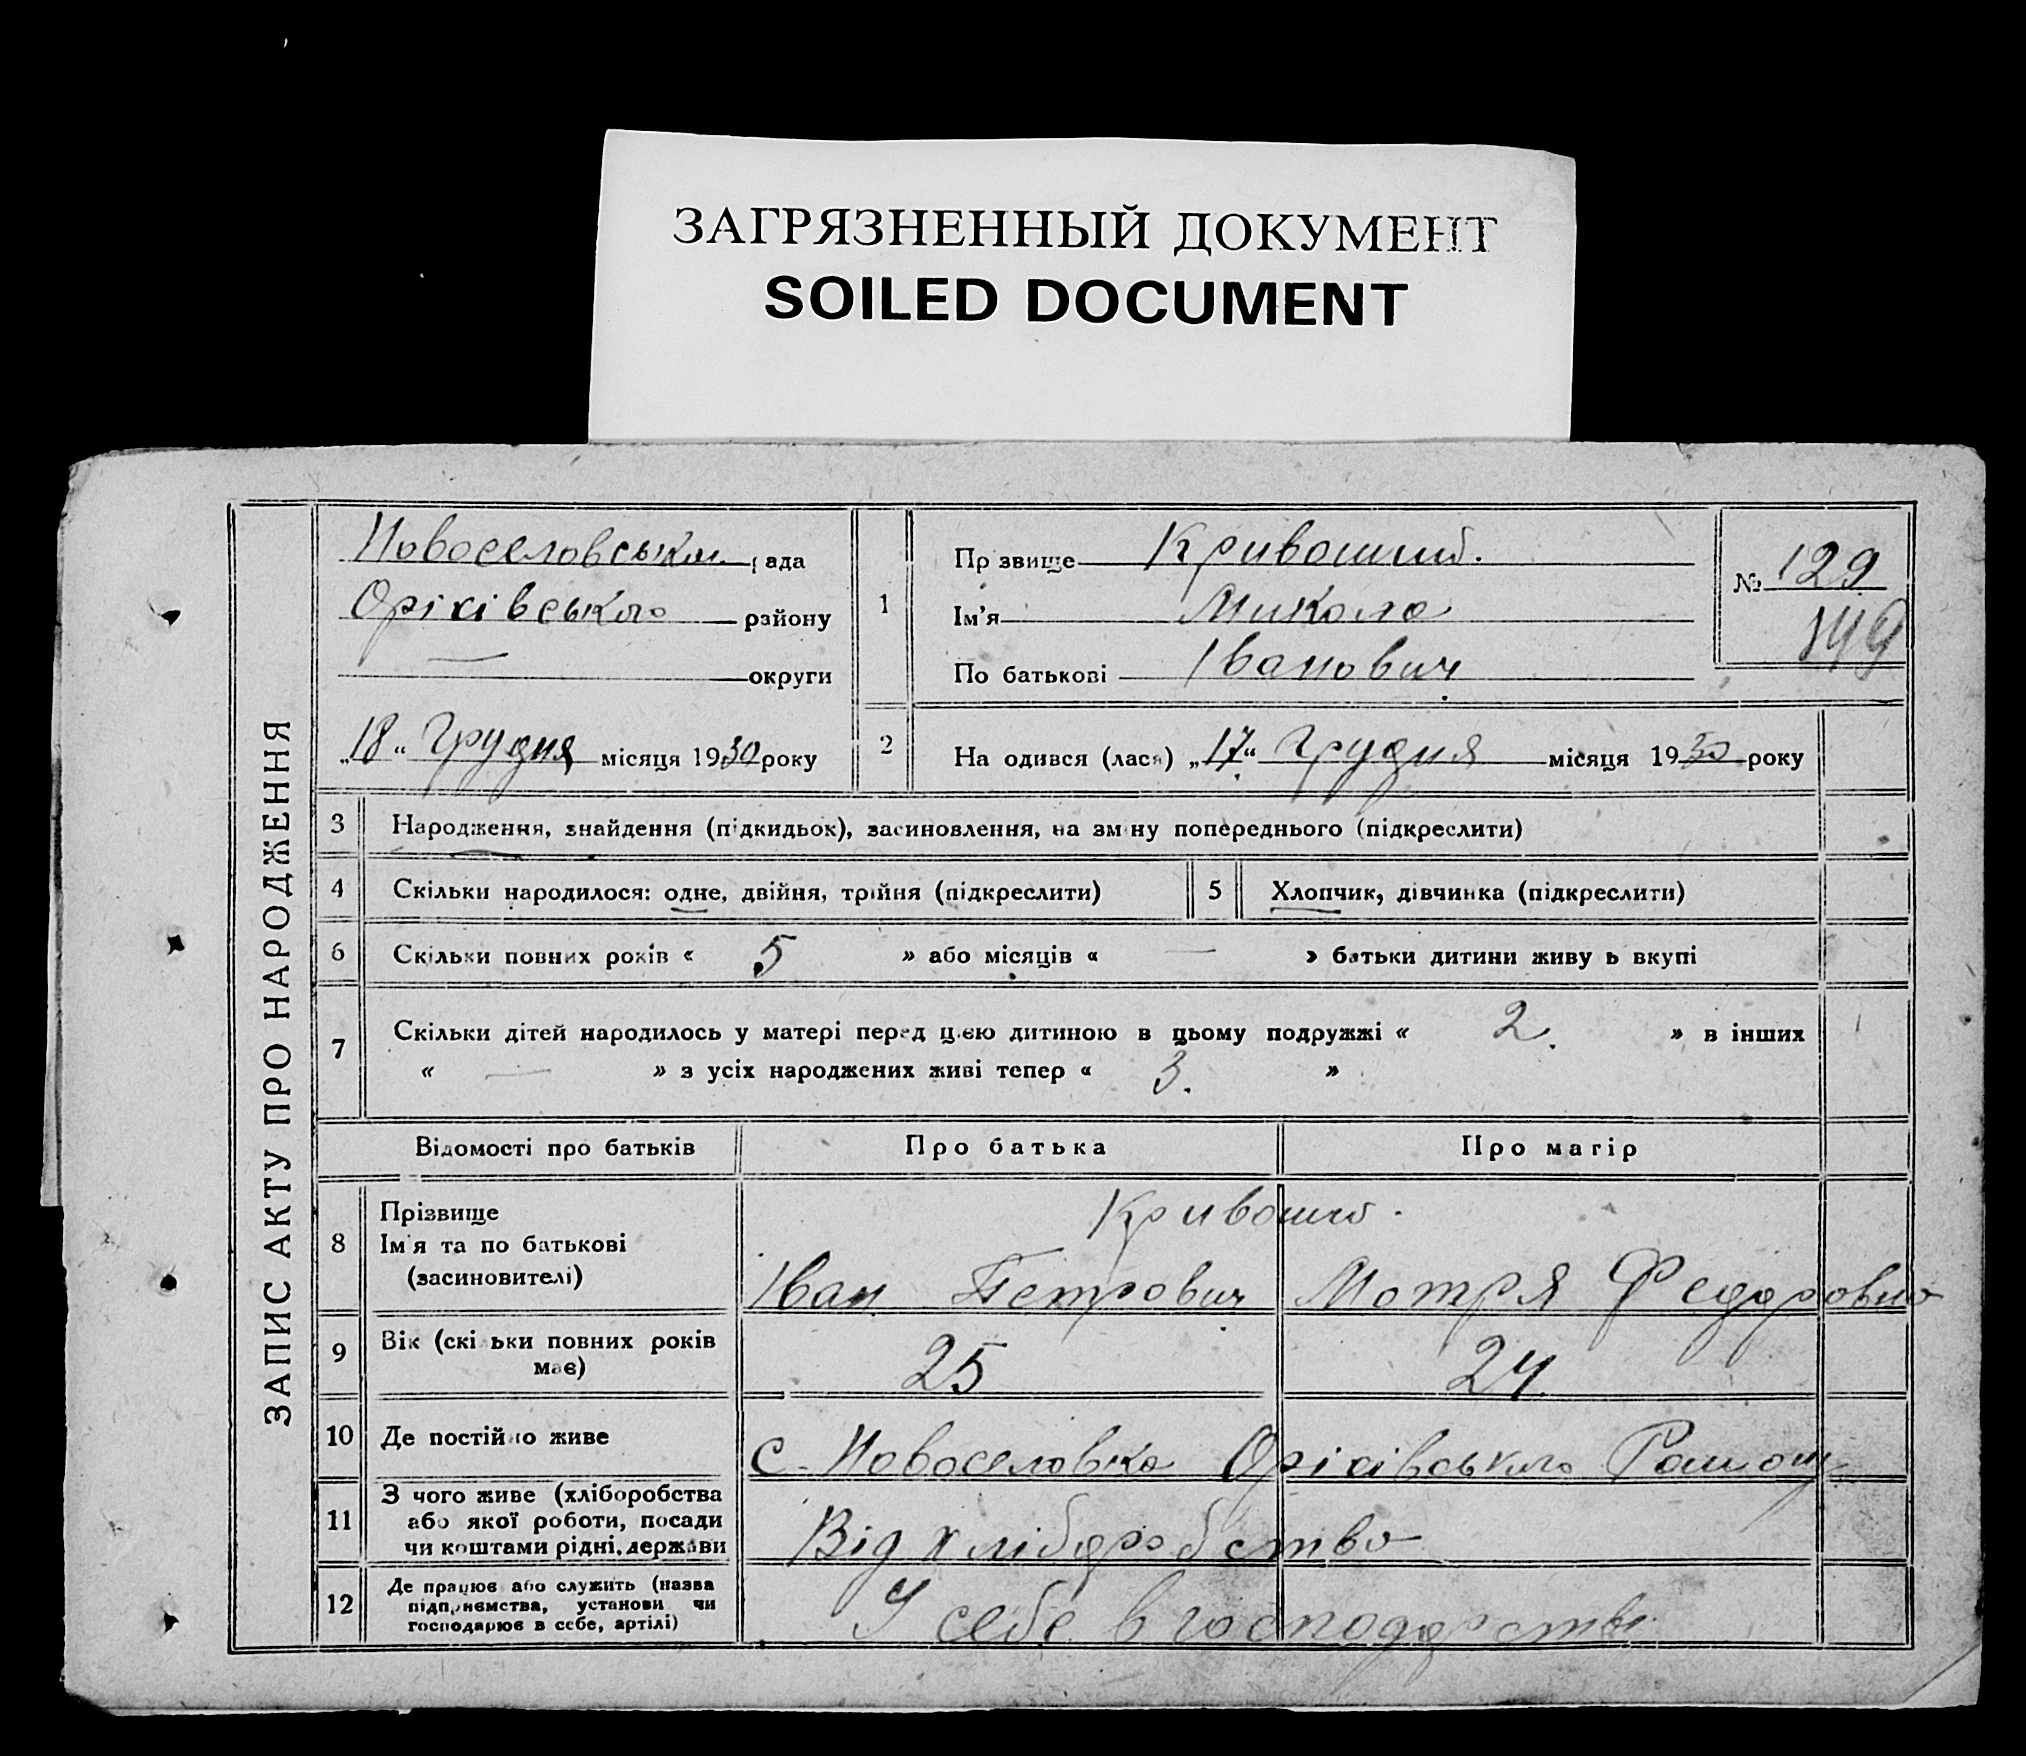 ЗАГРЯЗНЕННЫЙ ДОКУМЕНТ
SOILED DOCUMENT
ЗАПИС АКТУ ПРО НАРОДЖЕННЯ
Новоселовська рада
Оріхівського району
— округи
„18“ Грудня місяця 1930 року
1
Прізвище
Ім'я Микола
По батькові Іванович
№ 129
149
2
На одився (лася) „17“ Грудня місяця 1930 року
3 Народження, знайдення (підкидьок), засиновлення, на зміну попереднього (підкреслити)
4 Скільки народилося: одне, двійня, трійня (підкреслити)
5 Хлопчик, дівчинка (підкреслити)
6 Скільки повних років « 5 » або місяців « — » батьки дитини живу ь вкупі
7 Скільки дітей народилось у матері перед цією дитиною в цьому подружжі « 2. » в інших
« — » з усіх народжених живі тепер « 3. »
Відомості про батьків Про батька Про матір
8 Прізвище
Ім'я та по батькові Іван Петрович Мотря Федоровна
(засиновителі)
9 Вік (скільки повних років має) 25 24
10 Де постійно живе с. Новоселовка Оріхівського Району
11 З чого живе (хліборобства
або якої роботи, посади
чи коштами рідні, держави Від хліборобства
12 Де працює або служить (назва
підприємства, установи чи
господарює в себе, артілі) У себе в господарстві